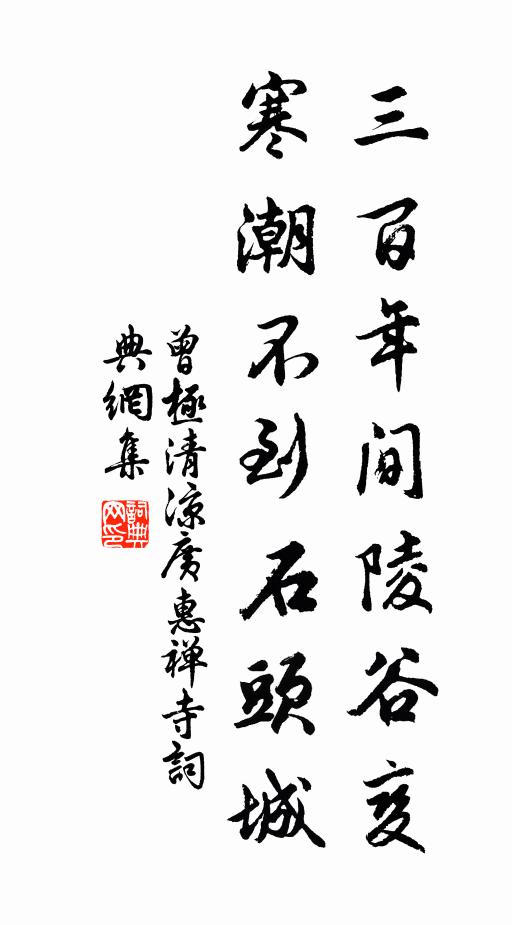 三百年间陵谷变
寒潮不到石頭城
曾極清涼廣惠禅寺詞
典網集
詞典
网印